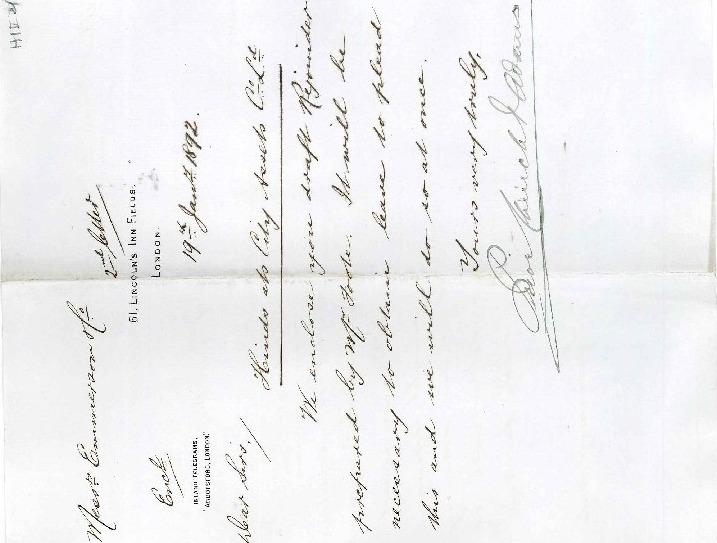 Mess.rs Emmerson & Co
2nd letter
61, LINCOLN'S INN FIELDS.
LONDON.
Encl.
INLAND TELEGRAMS.
"ABBOTSFORD, LONDON."
19th Jany. 1892.
Dear Sirs,/
Hinds ats City Assets Co. Ld.
We enclose you draft Rejoinder
prepared by Mr. Foote. It will be
necessary to obtain leave to plead
this and we will do so at once.
Yours very truly,
Adams